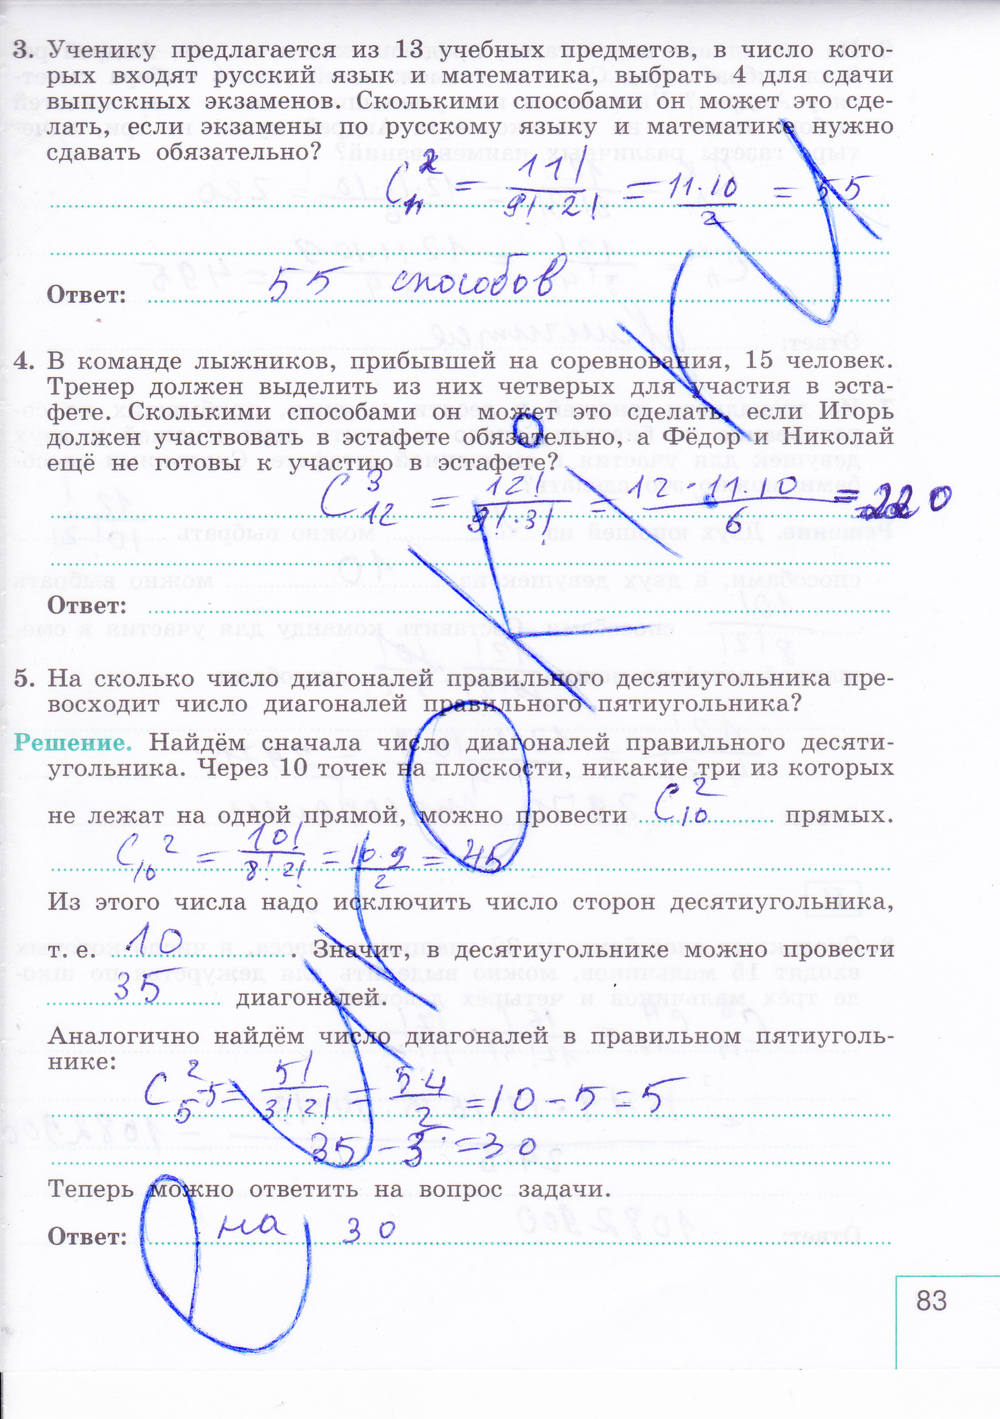 3. Ученику предлагается из 13 учебных предметов, в число кото-
рых входят русский язык и математика, выбрать 4 для сдачи
выпускных экзаменов. Сколькими способами он может это сде-
лать, если экзамены по русскому языку и математике нужно
сдавать обязательно?
C²₁₁ = 11!/9!·2! = 11·10/2 = 55
Ответ: 55 способов
4. В команде лыжников, прибывшей на соревнования, 15 человек.
Тренер должен выделить из них четверых для участия в эста-
фете. Сколькими способами он может это сделать, если Игорь
должен участвовать в эстафете обязательно, а Фёдор и Николай
ещё не готовы к участию в эстафете?
C³₁₂ = 12!/9!·3! = 12·11·10/6 = 220
Ответ:
5. На сколько число диагоналей правильного десятиугольника пре-
восходит число диагоналей правильного пятиугольника?
Решение. Найдём сначала число диагоналей правильного десяти-
угольника. Через 10 точек на плоскости, никакие три из которых
не лежат на одной прямой, можно провести C²₁₀ прямых.
C₁₀² = 10!/8!2! = 10·9/2 = 45
Из этого числа надо исключить число сторон десятиугольника,
т. е. 10 . Значит, в десятиугольнике можно провести
35 диагоналей.
Аналогично найдём число диагоналей в правильном пятиуголь-
нике:
C²₅-5 = 5!/3!2! = 5·4/2 = 10 - 5 = 5
35 - 5 = 30
Теперь можно ответить на вопрос задачи.
Ответ: на 30
83